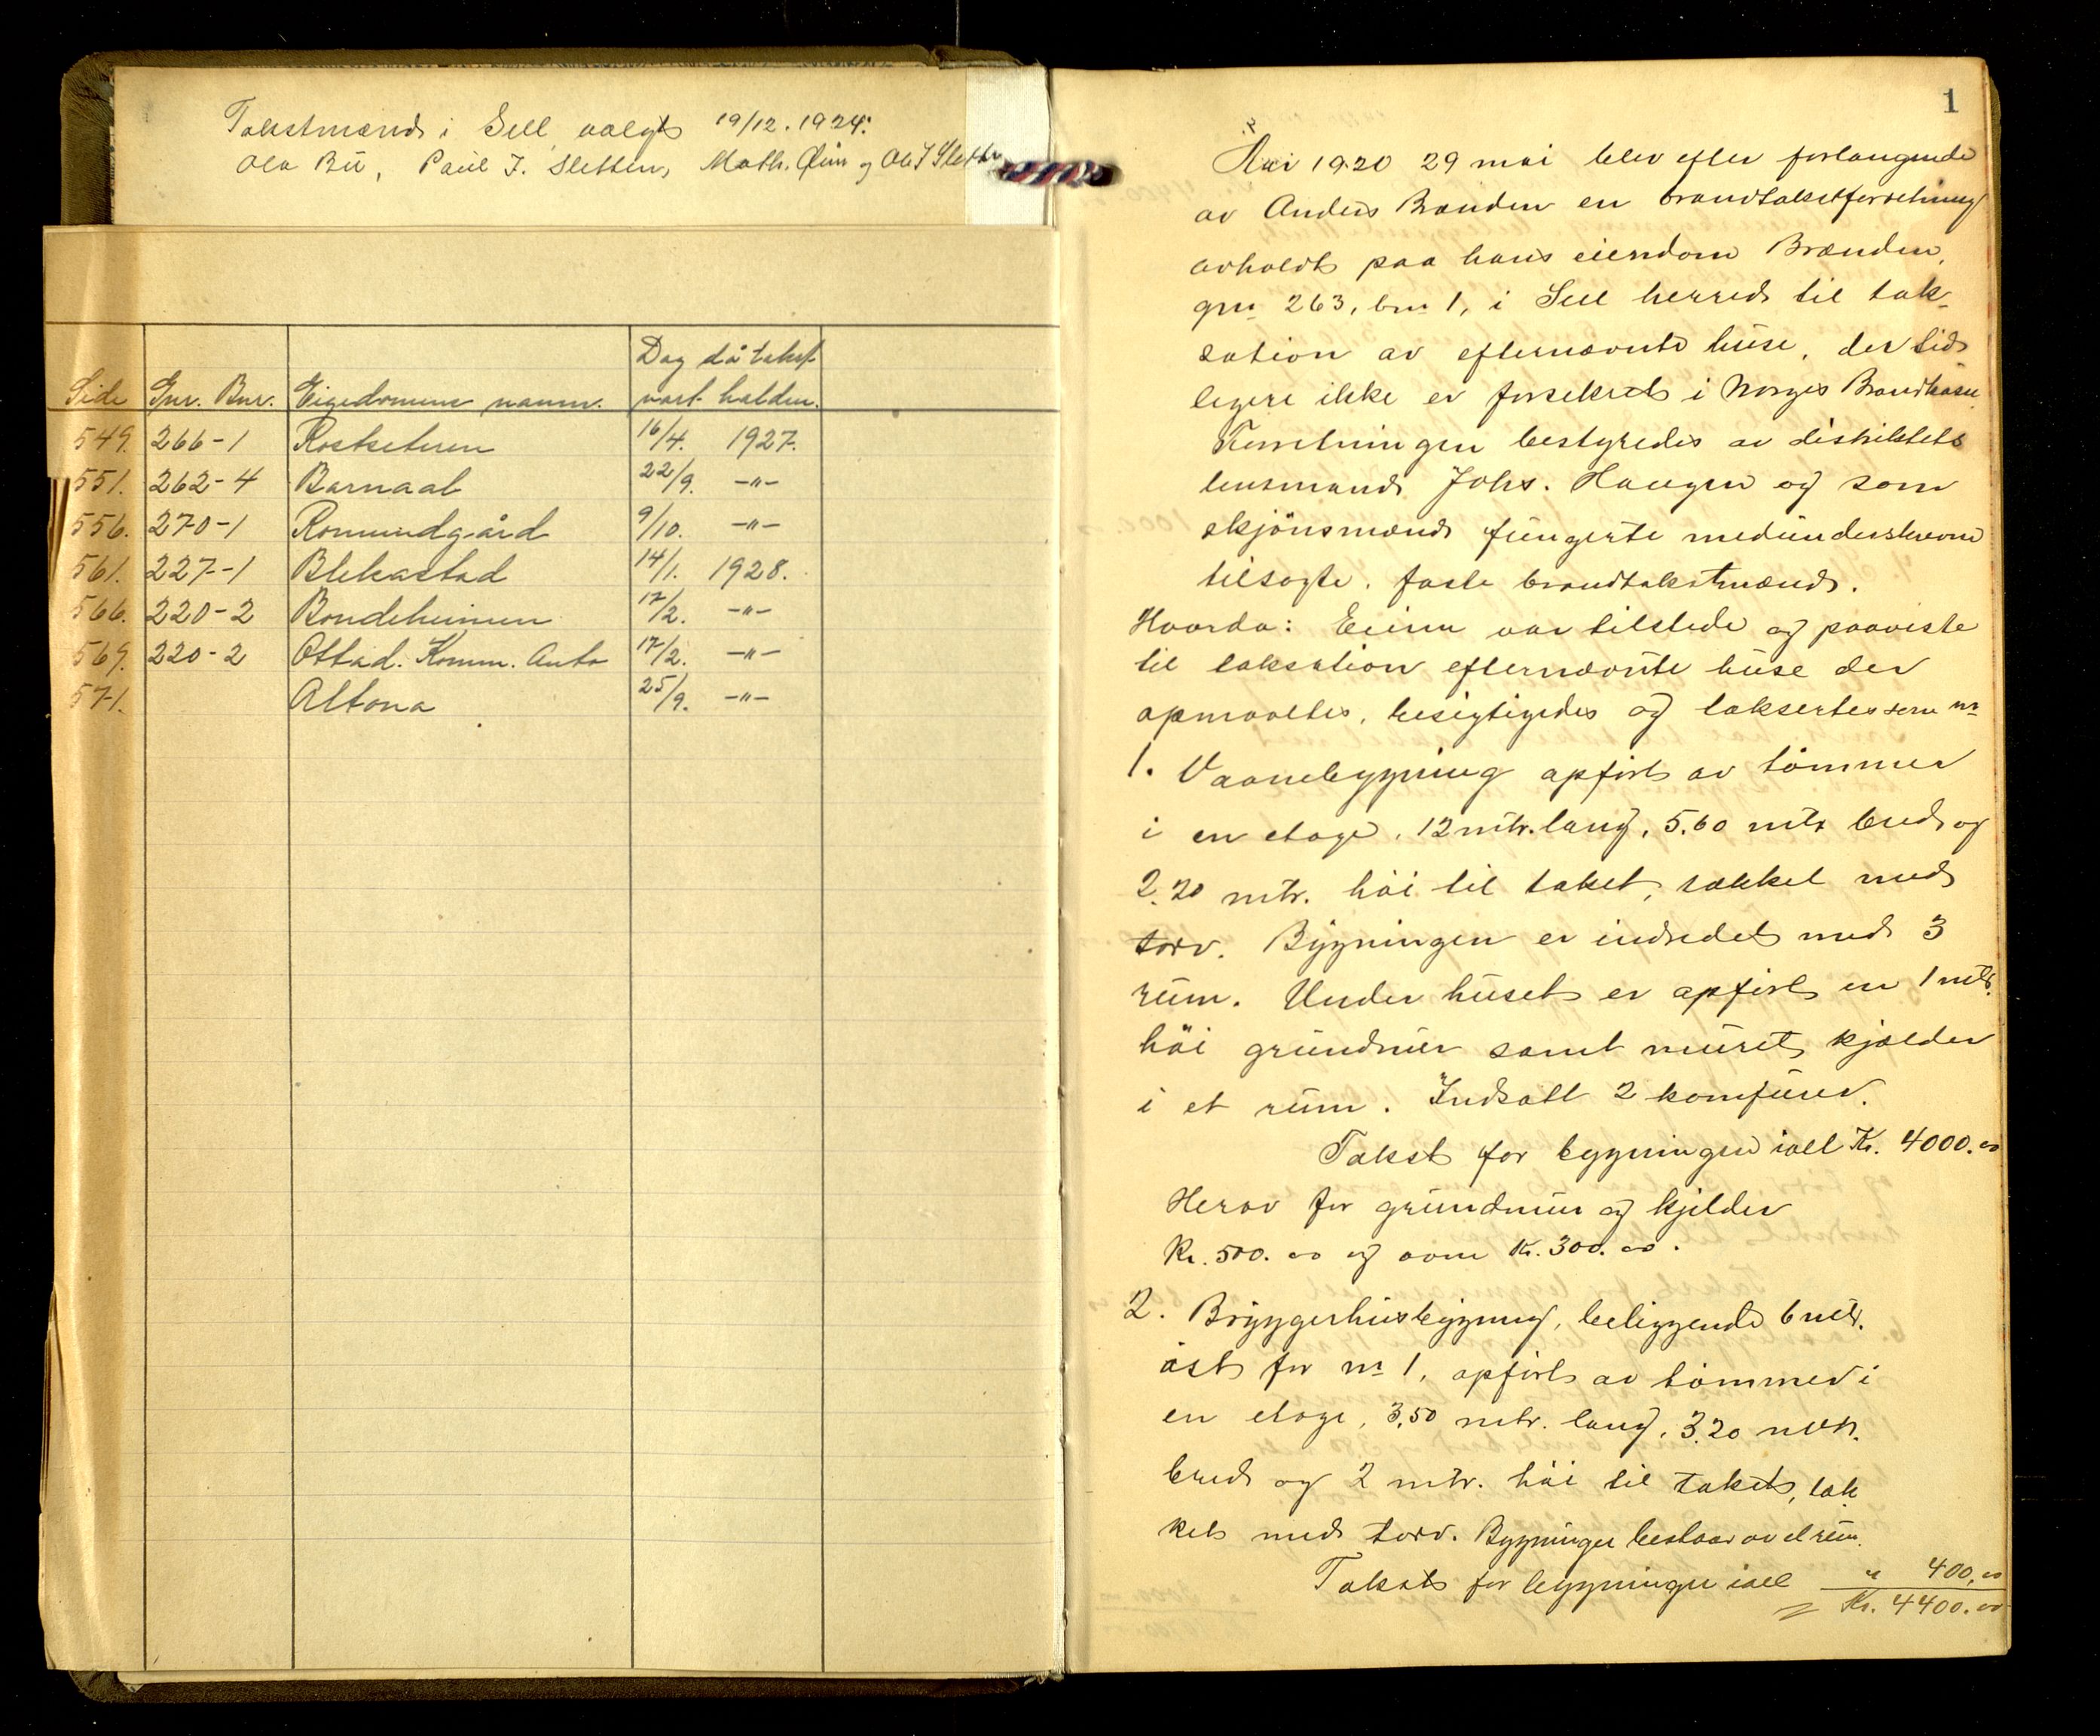 Takstmænd i Sell valgt 19/12. 1924:
Ola Bu, Paul J. Sletten, Math. Øien og Ole J Sletten
Side Gnr. Bnr. Eigedomens namn. Dag då takst vart halden.
549. 266-1 Rostseteren 16/4. 1927.
551. 262-4 Barnaal 22/9. -"-
556. 270-1 Romundgård 9/10. -"-
561. 227-1 Blekastad 14/1. 1928.
566. 220-2 Bondeheimen 17/2. -"-
569. 220-2 Ottad. Komm. Auto 17/2. -"-
571. Altona 25/9. -"-
1
Aar 1920 29 mai blev efter forlangende
av Anders Brænden en brandtakstforretning
avholdt paa hans eiendom Brænden,
grn 263, brn 1, i Sell herred til tak-
sation av efternævnte huse, der tid-
ligere ikke er forsikret i Norges Brandkasse.
Forretningen bestyredes av distriktets
lensmand Johs. Haugen og som
skjönsmænd fungerte medunderskrevne
tilsagte, faste brandtakstmænd.
Hvorda: Eieren var tilstede og paaviste
til taksation efternævnte huse der
opmaaltes, besigtigedes og taksertes som nr
1. Vaanebygning opfört av tömmer
i en etage, 12 mtr. lang, 5.60 mtr bred og
2.20 mtr. höi til taket, tækket med
torv. Bygningen er indredet med 3
rum. Under huset er opfört en 1 mtr.
höi grundmur samt muret kjælder
i et rum. Indsatt 2 komfurer.
Takst for bygningen ialt Kr. 4000.00
Herav for grundmur og kjelder
Kr. 500.00 og ovne Kr. 300.00.
2. Bryggerhusbygning, beliggende 6 mtr.
öst for nr 1, opfört av tömmer i
en etage, 3,50 mtr. lang, 3.20 mtr.
bred og 2 mtr. höi til taket, tæk
ket med torv. Bygningen bestaar av et rum.
Takst for bygningen ialt " 400,00
Kr. 4400.00